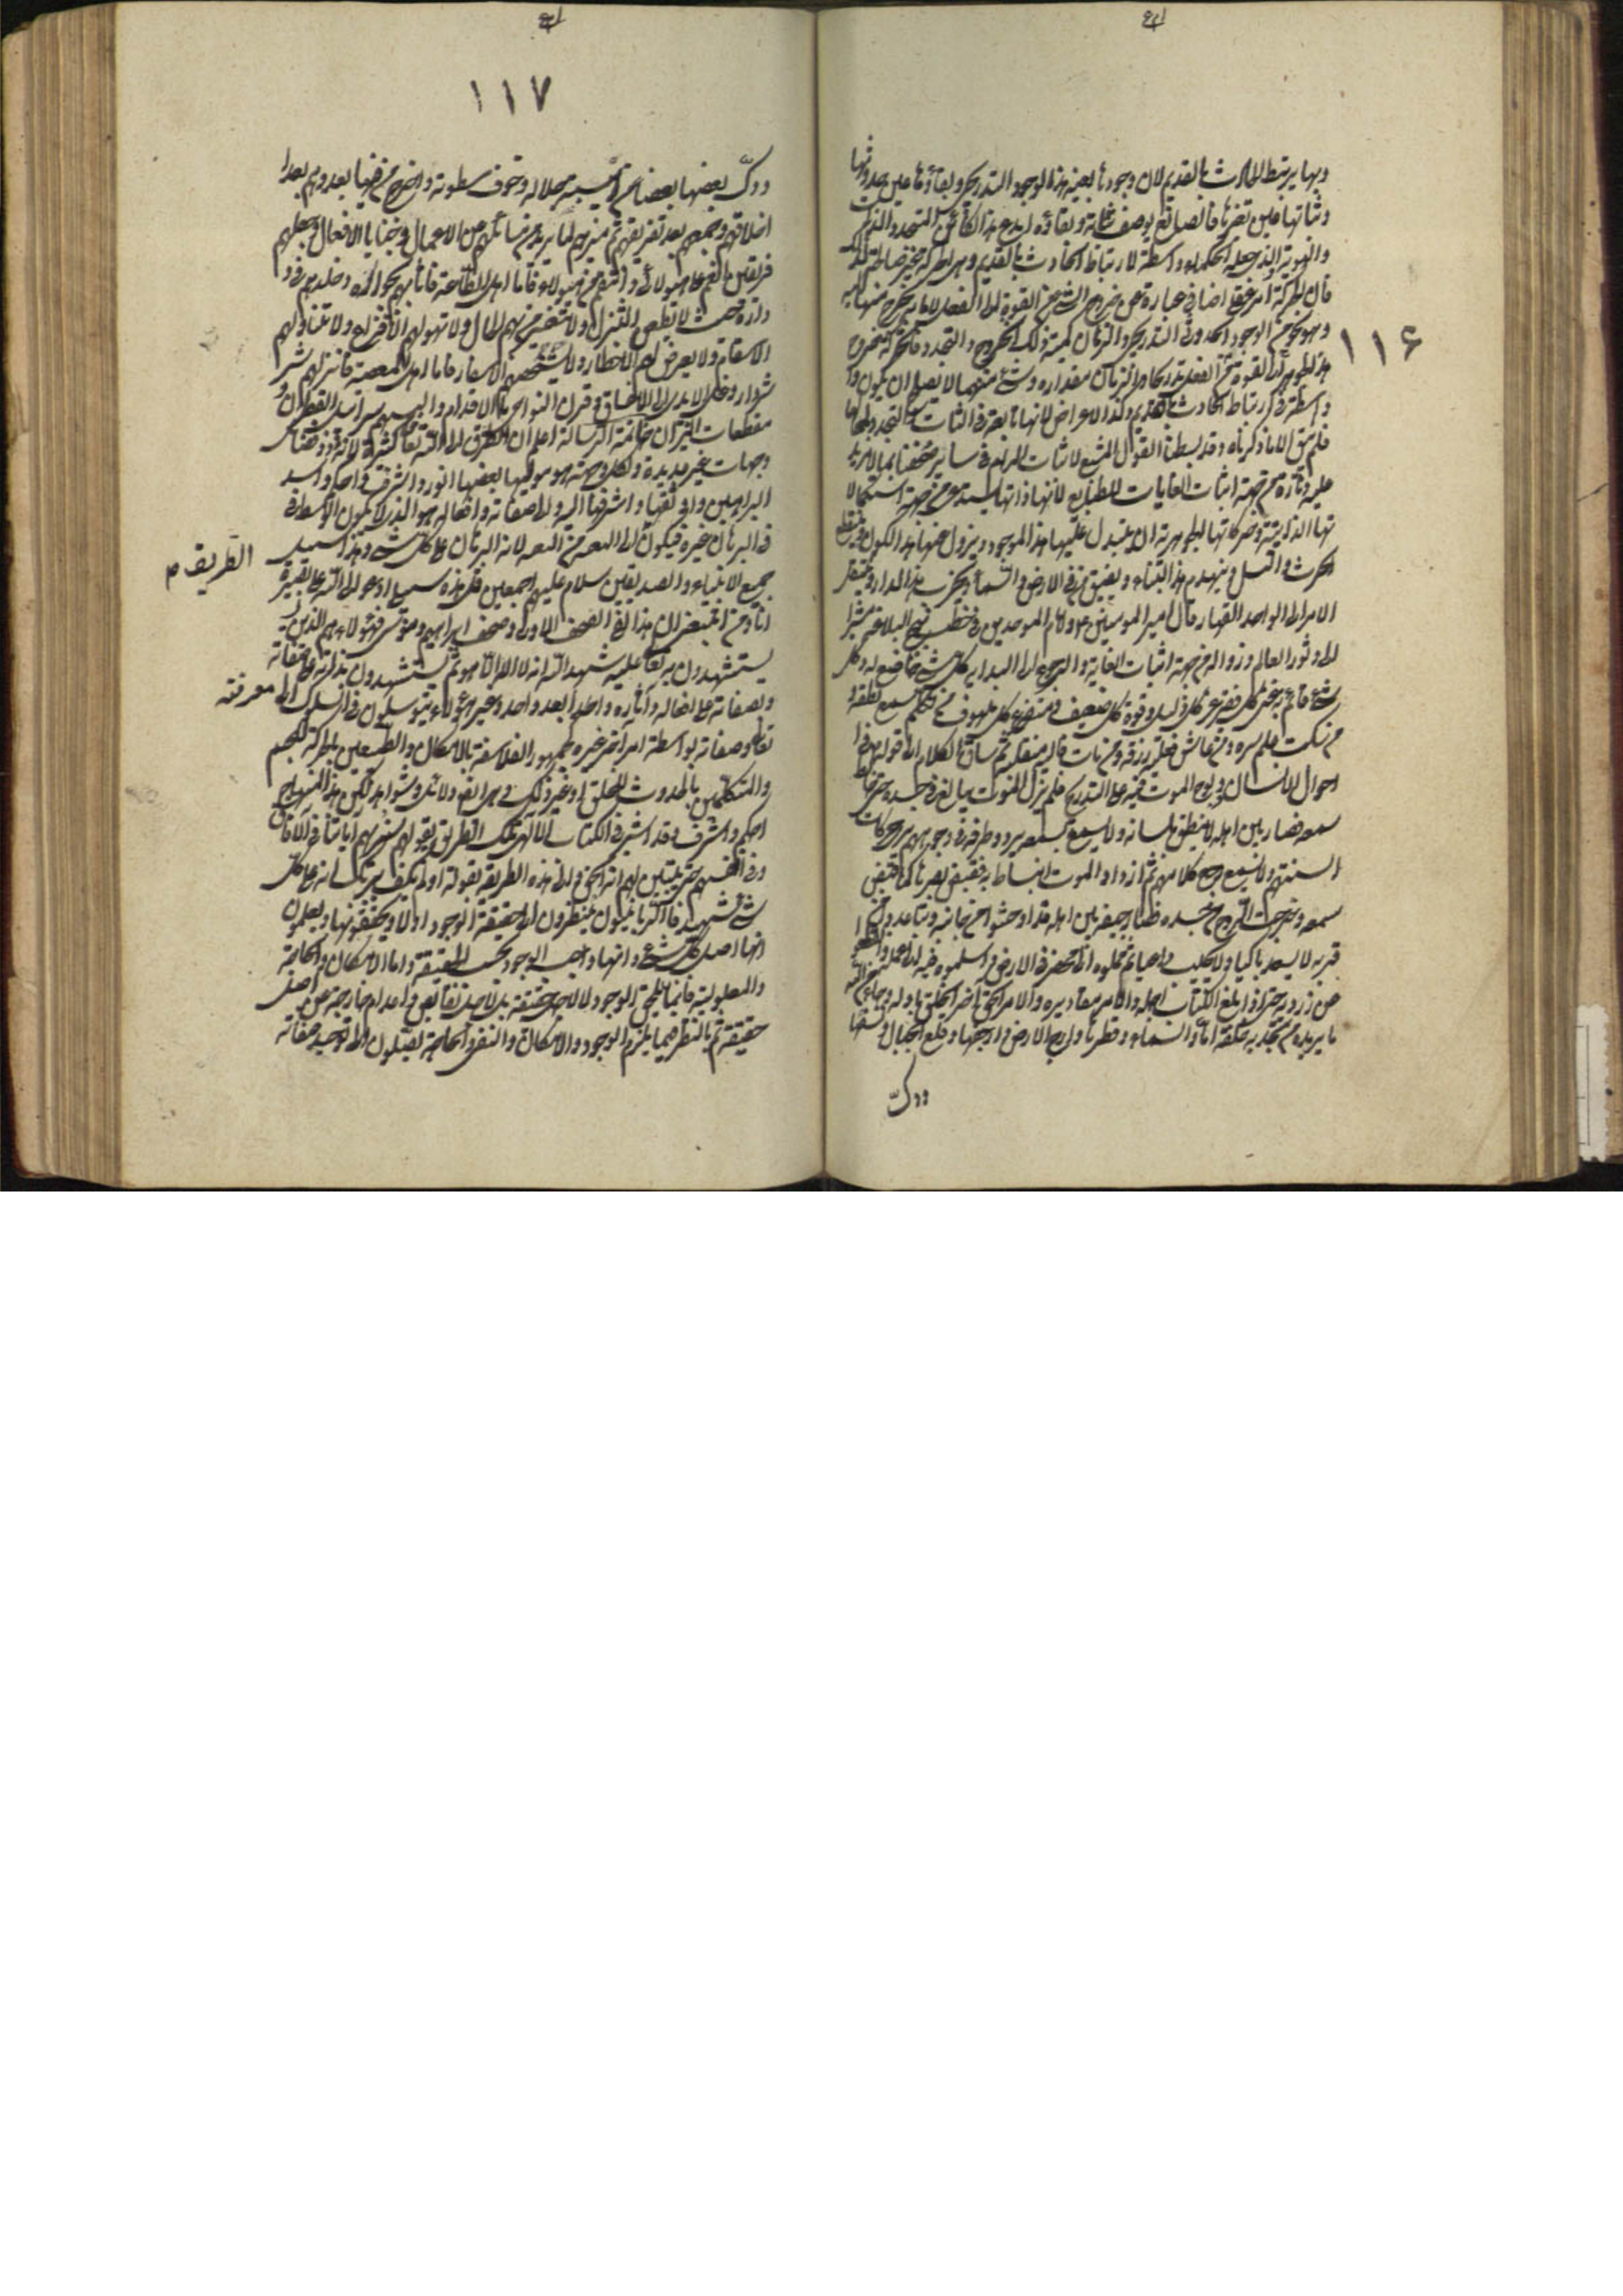 ١١٦
وبها يرتبط الحادث بالقديم لان وجودها بعينه هذا الوجود التدريجي وبقاؤها عين حدوثها
وثباتها عين تغيرها فالصانع بوصف ثباته وبقائه ابدع هذا الكائن المتجدد الذات
والهوية والذي جعله الحكماء واسطة لارتباط الحادث بالقديم وهي الحركة غير صالحة لذلك
فان الحركة امر عقلي اضافي عبارة عن خروج الشيء من القوة الى الفعل لا ما به يخرج منها اليه
وهو نحو من الوجود الحدوثي التدريجي والزمان كمية ذلك الخروج والتجدد فالحركة خروج
هذا الجوهر من القوة الى الفعل تدريجا والزمان مقداره وشيء منهما لا يصلح ان يكون
واسطة في ارتباط الحادث بالقديم وكذا الاعراض لانها تابعة في الثبات والتجدد لمحالها
فلم يبق الا ما ذكرناه وقد بسطنا القول المشبع لاثبات المرام في سائر صحفنا بما لا مزيد
عليه وتارة من جهة اثبات الغايات للطبايع لانها ذاتها تستدعي من جهة استكمالا
تها الذاتية وحركاتها الجوهرية ان يتبدل عليها هذا الوجود ويزول عنها هذا الكون وينقطع
الحرث والنسل وينهدم هذا البناء ويضيق من في الارض والسماء ويخرب هذا الدار وينتقل
الامر الى الواحد القهار قال امير المؤمنين ع وامام الموحدين في خطب نهج البلاغة مشيرا
الى دثور العالم وزواله من جهة اثبات الغاية والرجوع الى البداية كل شيء خاضع له وكل
شيء قائم به غنى كل فقير وعز كل ذليل وقوة كل ضعيف ومفزع كل ملهوف من تكلم سمع نطقه
من سكت علم سره ومن عاش فعليه رزقه ومن مات فاليه منقلبه ثم ساق الكلام الى قوله في
احوال الانسان وولوج الموت فيه على التدريج فلم يزل الموت يبالغ في جسده حتى خالط
سمعه فصار بين اهله لا ينطق بلسانه ولا يسمع بسمعه يردد طرفه في وجوههم يرى حركات
السنتهم ولا يسمع رجع كلامهم ثم ازداد الموت التياطا به فقبض بصره كما قبض
سمعه وخرجت الروح من جسده فصار جيفة بين اهله قد اوحشوا من جانبه وتباعدوا من
قربه لا يسعد باكيا ولا يجيب داعيا ثم حملوه الى مخط في الارض فاسلموه فيه الى عمله وانقطعوا
عن زورته حتى اذا بلغ الكتاب اجله والامر مقاديره والحق آخر الخلق باوله وجاء من امر الله
ما يريده من تجديد خلقه اماد السماء وفطرها وارج الارض وارجفها وقلع الجبال ونسفها
ودكّ
١١٧
ودكّ بعضها بعضا من هيبة جلاله وخوف سطوته واخرج من فيها فجددهم بعد
اخلاقهم وجمعهم بعد تفريقهم ثم ميزهم لما يريد من مسائلهم عن الاعمال وخبايا الافعال وجعلهم
فريقين انعم على هؤلاء وانتقم من هؤلاء فاما اهل الطاعة فاثابهم بجواره وخلدهم في
داره حيث لا يظعن النزال ولا يتغير بهم الحال ولا تنوبهم الافزاع ولا تنالهم
الاسقام ولا يعرض لهم الاخطار ولا يشخصهم الاسفار فاما اهل المعصية فانزلهم شر
دار وغل الايدي الى الاعناق وقرن النواصي بالاقدام والبسهم سرابيل القطران و
مقطعات النيران خاتمة الرسالة اعلم ان الطرق الى الله تعالى كثيرة لانه ذو فضائل
وجهات غير عديدة ولكل وجهة هو موليها لكن بعضها انور واشرف واحكم واسد
البراهين واوثقها واشرفها اليه والى صفاته وافعاله هو الذي لا يكون الوسط
في البرهان غيره فيكون الطريق الى البغية من البغية لانه البرهان على كل شيء وهذا سبيل
جميع الانبياء والصديقين سلام عليهم اجمعين قل هذه سبيلي ادعو الى الله على بصيرة
انا ومن اتبعني ان هذا لفي الصحف الاولى صحف ابراهيم وموسى فهؤلاء هم الذين
يستشهدون به تعالى عليه شهد الله انه لا اله الا هو ثم يستشهدون بذاته على صفاته
وبصفاته على افعاله وآثاره واحدا بعد واحد وغير هؤلاء يتوسلون في السلوك الى معرفته
تعالى وصفاته بواسطة امر آخر غيره كجمهور الفلاسفة بالامكان والطبيعيين بالحركة للجسم
والمتكلمين بالحدوث للخلق او غير ذلك وهي ايضا دلائل وشواهد لكن هذا المنهاج
احكم واشرف وقد اشير في الكتاب الالهي الى تلك الطرق بقوله سنريهم آياتنا في الآفاق
وفي انفسهم حتى يتبين لهم انه الحق والى هذه الطريقة بقوله اولم يكف بربك انه على كل
شيء شهيد فالربانيون ينظرون الى حقيقة الوجود اولا ويحققونها ويعلمون
انها اصل كل شيء وانها واجب الوجود بحسب الحقيقة واما الامكان والحاجة
والمعلولية فانما يلحق الوجود لا لاجل حقيقته بل لاجل نقائص واعدام خارجة عن اصل
حقيقته ثم بالنظر فيما يلزم الوجود والامكان والفقر والحاجة يصلون الى توحيد صفاته
الطريق م